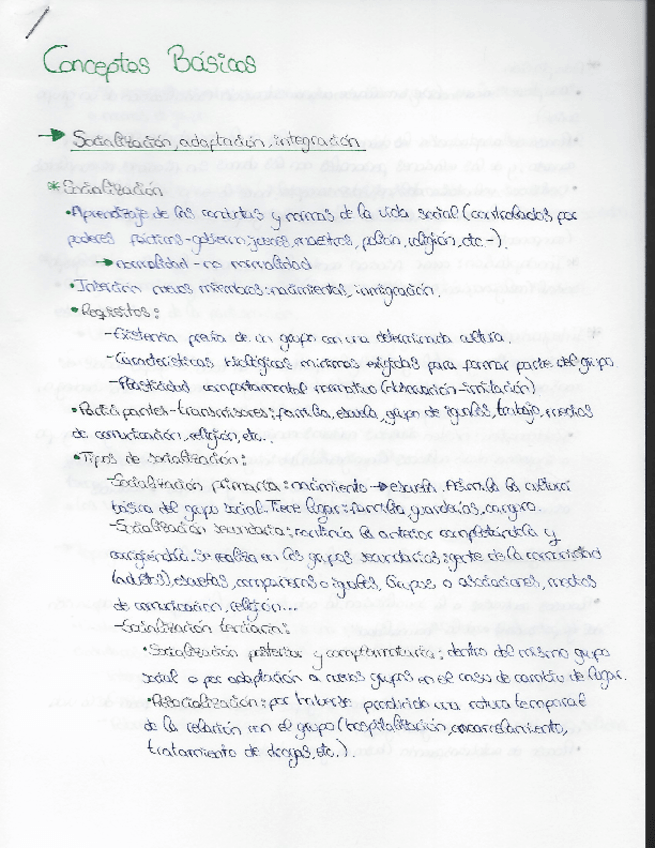 Conceptos Básicos
→ Socialización, adaptación, integración
* Socialización
• Aprendizaje de las conductas y normas de la vida social (controlados por
poderes fácticos-gobierno, jueces, maestros, policía, religión, etc-).
→ normalidad - no normalidad
• Inserción nuevos miembros: nacimientos, inmigración.
• Requisitos:
- Existencia previa de un grupo con una determinada cultura.
- Características biológicas mínimas exigidas para formar parte del grupo.
- Plasticidad comportamental normativa (educación-imitación)
• transmisores: familia, escuela, grupo de iguales, trabajo, medios
de comunicación, religión, etc...
• Tipos de socialización:
- Socialización primaria: nacimiento → escuela. Asimila la cultura
básica del grupo social. Tiene lugar: familia, guarderías,
- Socialización secundaria: continúa la anterior completándola y
corrigiéndola. Se realiza en los grupos secundarios: gente de la comunidad
escuelas, compañeros o iguales, Grupos o asociaciones, medios
de comunicación, religión...
- Socialización terciaria:
• Socialización posterior y complementaria: dentro del mismo grupo
social o por adaptación a nuevos grupos en el caso de cambio de lugar.
• Resocialización: por haberse producido una rotura temporal
de la relación con el grupo (hospitalización, encarcelamiento,
tratamiento de drogas, etc.).